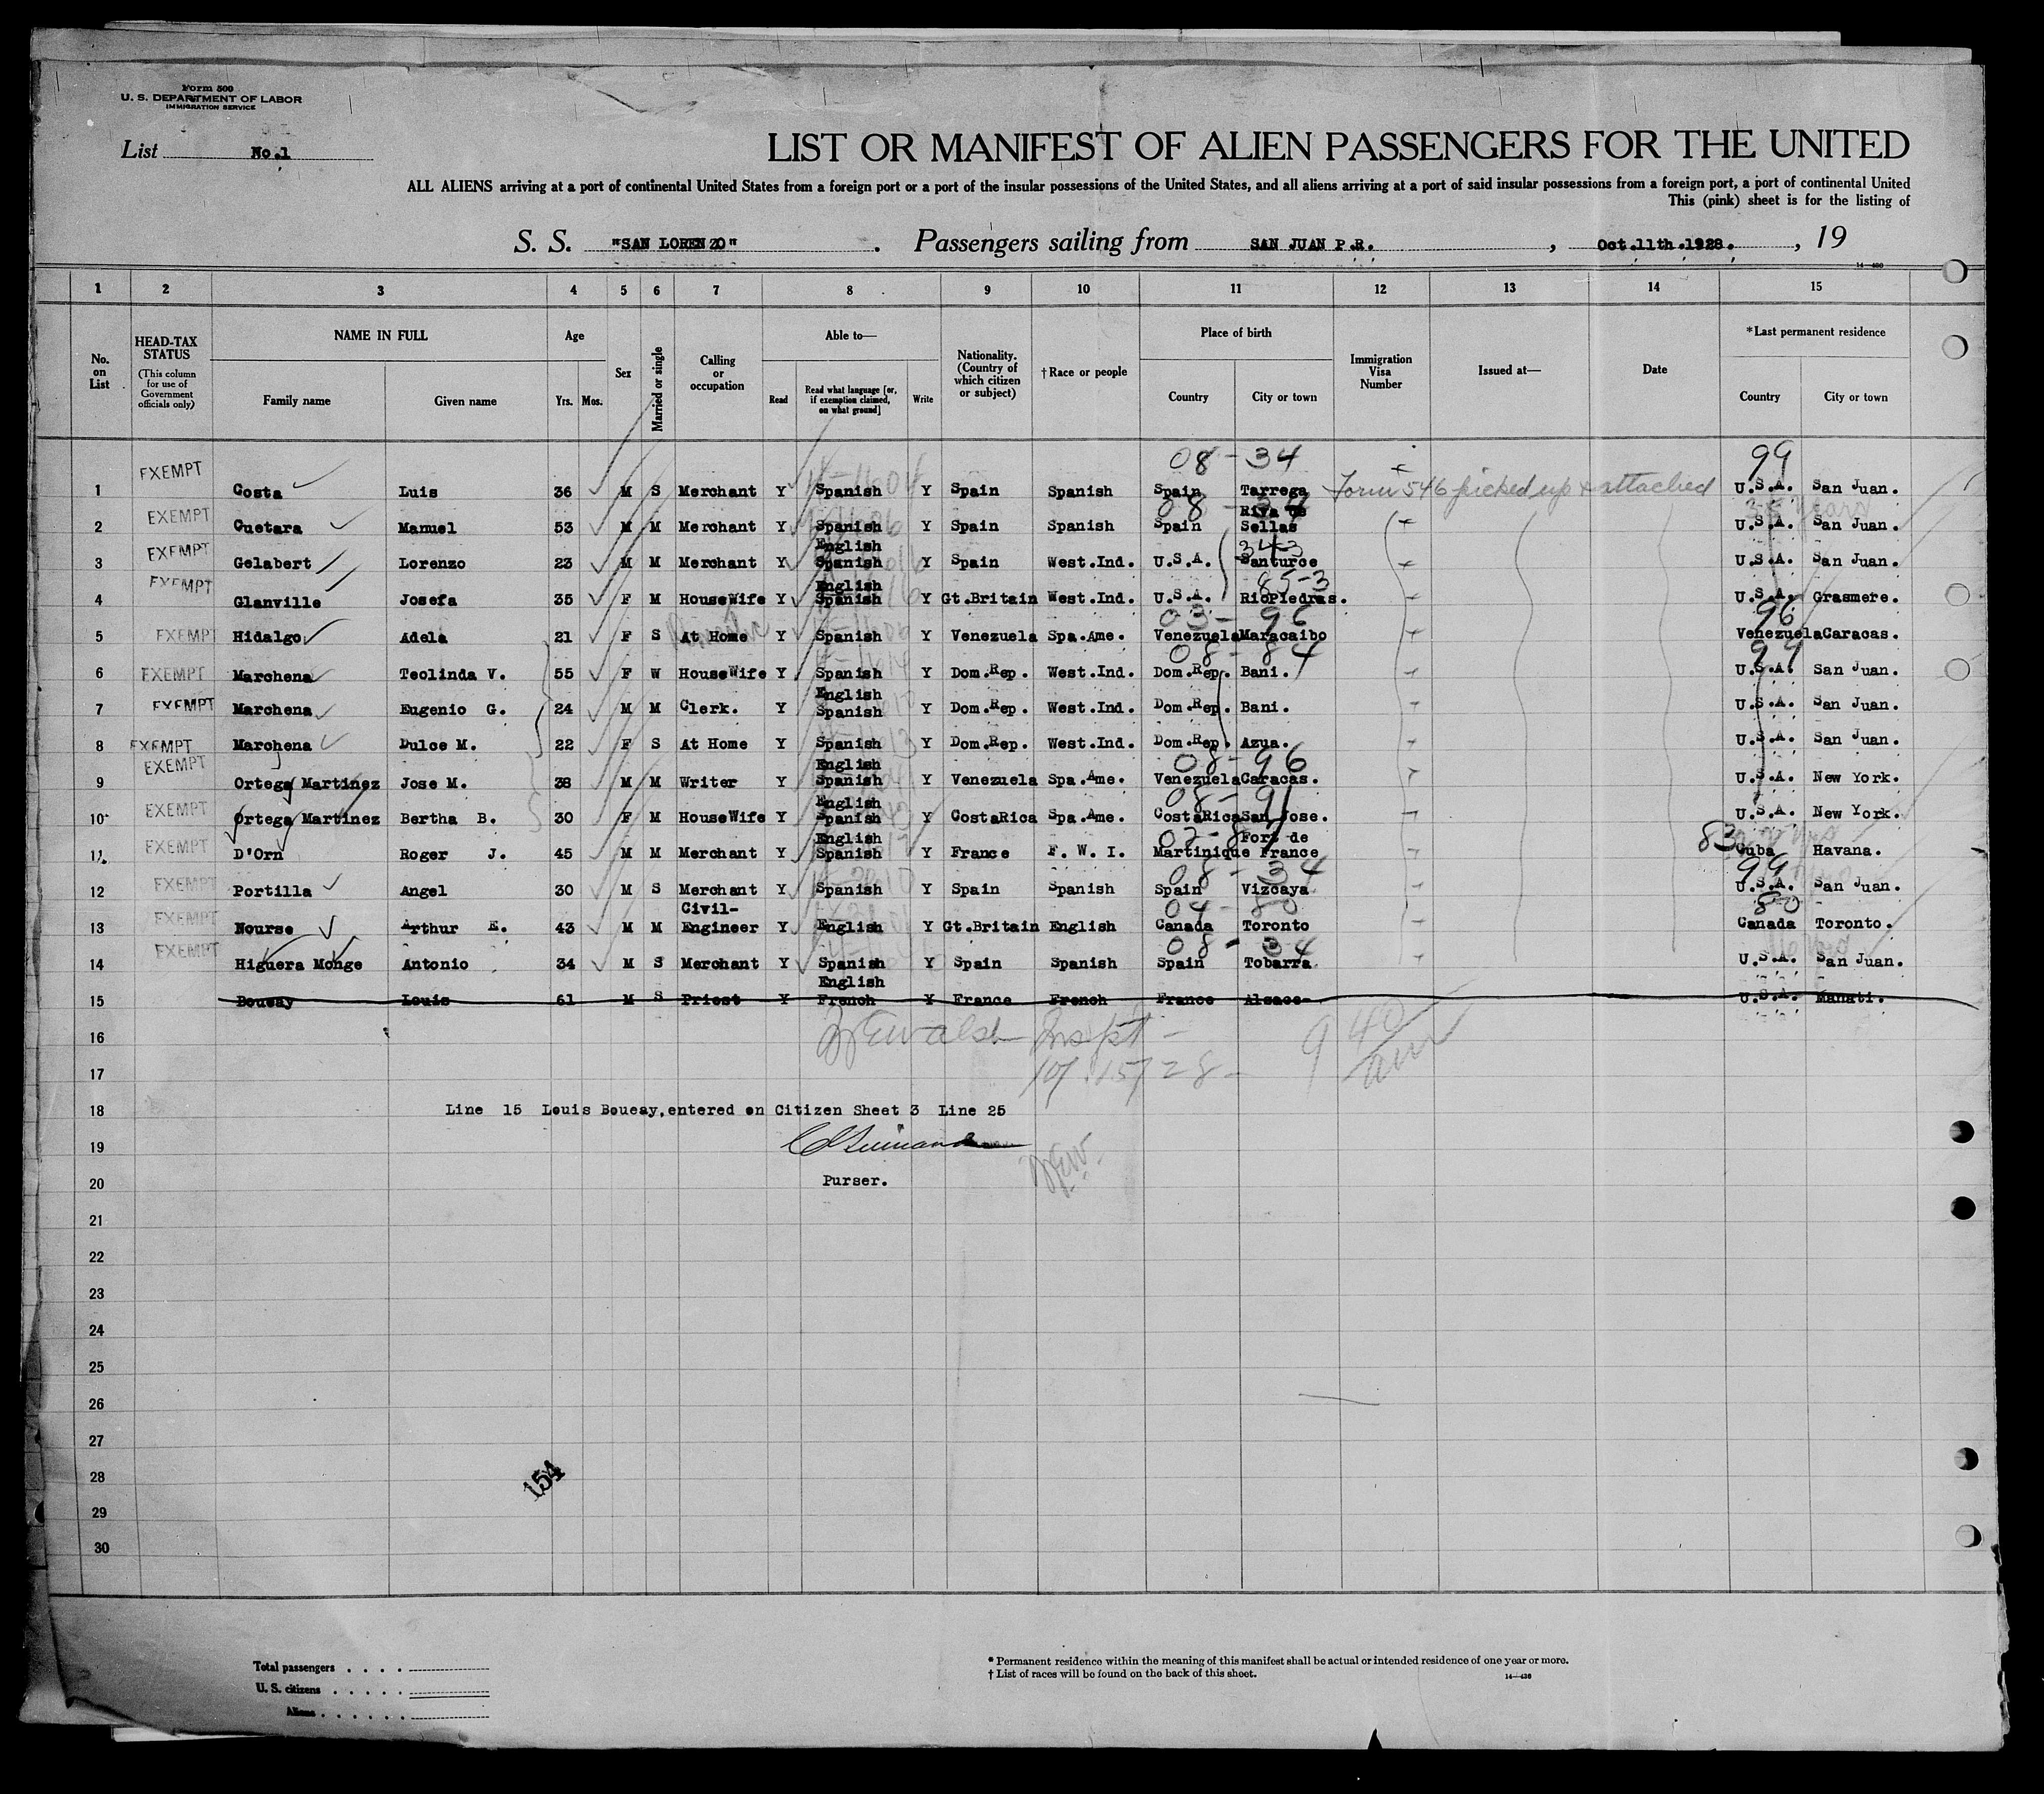 Form 500
U. S. DEPARTMENT OF LABOR
IMMIGRATION SERVICE
List No.1
LIST OR MANIFEST OF ALIEN PASSENGERS FOR THE UNITED
ALL ALIENS arriving at a port of continental United States from a foreign port or a port of the insular possessions of the United States, and all aliens arriving at a port of said insular possessions from a foreign port, a port of continental United
This (pink) sheet is for the listing of
S. S. "SAN LORENZO" . Passengers sailing from SAN JUAN P.R. , Oct.11th.1928. , 19
14—430
1 2 3 4 5 6 7 8 9 10 11 12 13 14 15
No. on List
HEAD-TAX STATUS
(This column for use of Government officials only)
NAME IN FULL
Family name Given name
Age
Yrs. Mos.
Sex
Married or single
Calling or occupation
Able to—
Read Read what language [or, if exemption claimed, on what ground] Write
Nationality. (Country of which citizen or subject)
†Race or people
Place of birth
Country City or town
Immigration Visa Number
Issued at—
Date
*Last permanent residence
Country City or town
08 - 34 99
1 EXEMPT Costa Luis 36 M S Merchant Y Spanish Y Spain Spanish Spain Tarrega Form 546 picked up & attached U.S.A. San Juan.
2 EXEMPT Cuetara Manuel 53 M M Merchant Y Spanish Y Spain Spanish Spain Riva de Sellas U.S.A. San Juan.
3 EXEMPT Gelabert Lorenzo 23 M M Merchant Y English Spanish Y Spain West.Ind. U.S.A. Santurce U.S.A. San Juan.
85-3
4 EXEMPT Glanville Josefa 35 F M HouseWife Y English Spanish Y Gt.Britain West.Ind. U.S.A. RioPiedras. U.S.A. Grasmere.
03 - 96 96
5 EXEMPT Hidalgo Adela 21 F S At Home Y Spanish Y Venezuela Spa.Ame. Venezuela Maracaibo Venezuela Caracas.
08 - 84 99
6 EXEMPT Marchena Teolinda V. 55 F W HouseWife Y Spanish Y Dom.Rep. West.Ind. Dom.Rep. Bani. U.S.A. San Juan.
7 EXEMPT Marchena Eugenio G. 24 M M Clerk. Y English Spanish Y Dom.Rep. West.Ind. Dom.Rep. Bani. U.S.A. San Juan.
8 EXEMPT Marchena Dulce M. 22 F S At Home Y Spanish Y Dom.Rep. West.Ind. Dom.Rep. Azua. U.S.A. San Juan.
08 - 96
9 EXEMPT Ortega Martinez Jose M. 38 M M Writer Y English Spanish Y Venezuela Spa.Ame. Venezuela Caracas. U.S.A. New York.
08 - 91
10 EXEMPT Ortega Martinez Bertha B. 30 F M HouseWife Y English Spanish Y CostaRica Spa.Ame. CostaRica San Jose. U.S.A. New York.
83
11 EXEMPT D'Orn Roger J. 45 M M Merchant Y English Spanish Y France F. W. I. Martinique Fort de France Cuba Havana.
08 - 34 99
12 EXEMPT Portilla Angel 30 M S Merchant Y Spanish Y Spain Spanish Spain Vizcaya U.S.A. San Juan.
04 - 80 80
13 EXEMPT Nourse Arthur E. 43 M M Civil-Engineer Y English Y Gt.Britain English Canada Toronto Canada Toronto.
08 - 34
14 EXEMPT Higuera Monge Antonio 34 M S Merchant Y Spanish Y Spain Spanish Spain Tobarra U.S.A. San Juan.
15 Boueay Louis 61 M S Priest Y English French Y France French France Alsace U.S.A. Manati.
16
Inspt
9 40 am
17 10/15/28
18 Line 15 Louis Boueay,entered on Citizen Sheet 3 Line 25
19
20 Purser.
21
22
23
24
25
26
27
28
154
29
30
Total passengers . . . .
U. S. citizens . . . . .
Aliens . . . . . .
* Permanent residence within the meaning of this manifest shall be actual or intended residence of one year or more.
† List of races will be found on the back of this sheet. 14—430